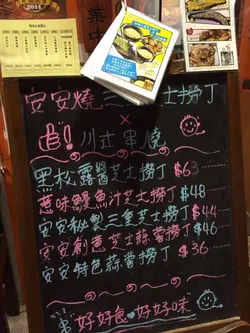 2014
業中
安安燒三
士撈丁
×
追!川式串燒
黑松露醬芝士撈丁 $63
惹味鰻魚汁芝士撈丁 $48
安安秘製三重芝士撈丁 $44
安安創意芝士蒜蓉撈丁 $46
安安特色蒜蓉撈丁 $36
好好食♥好好味